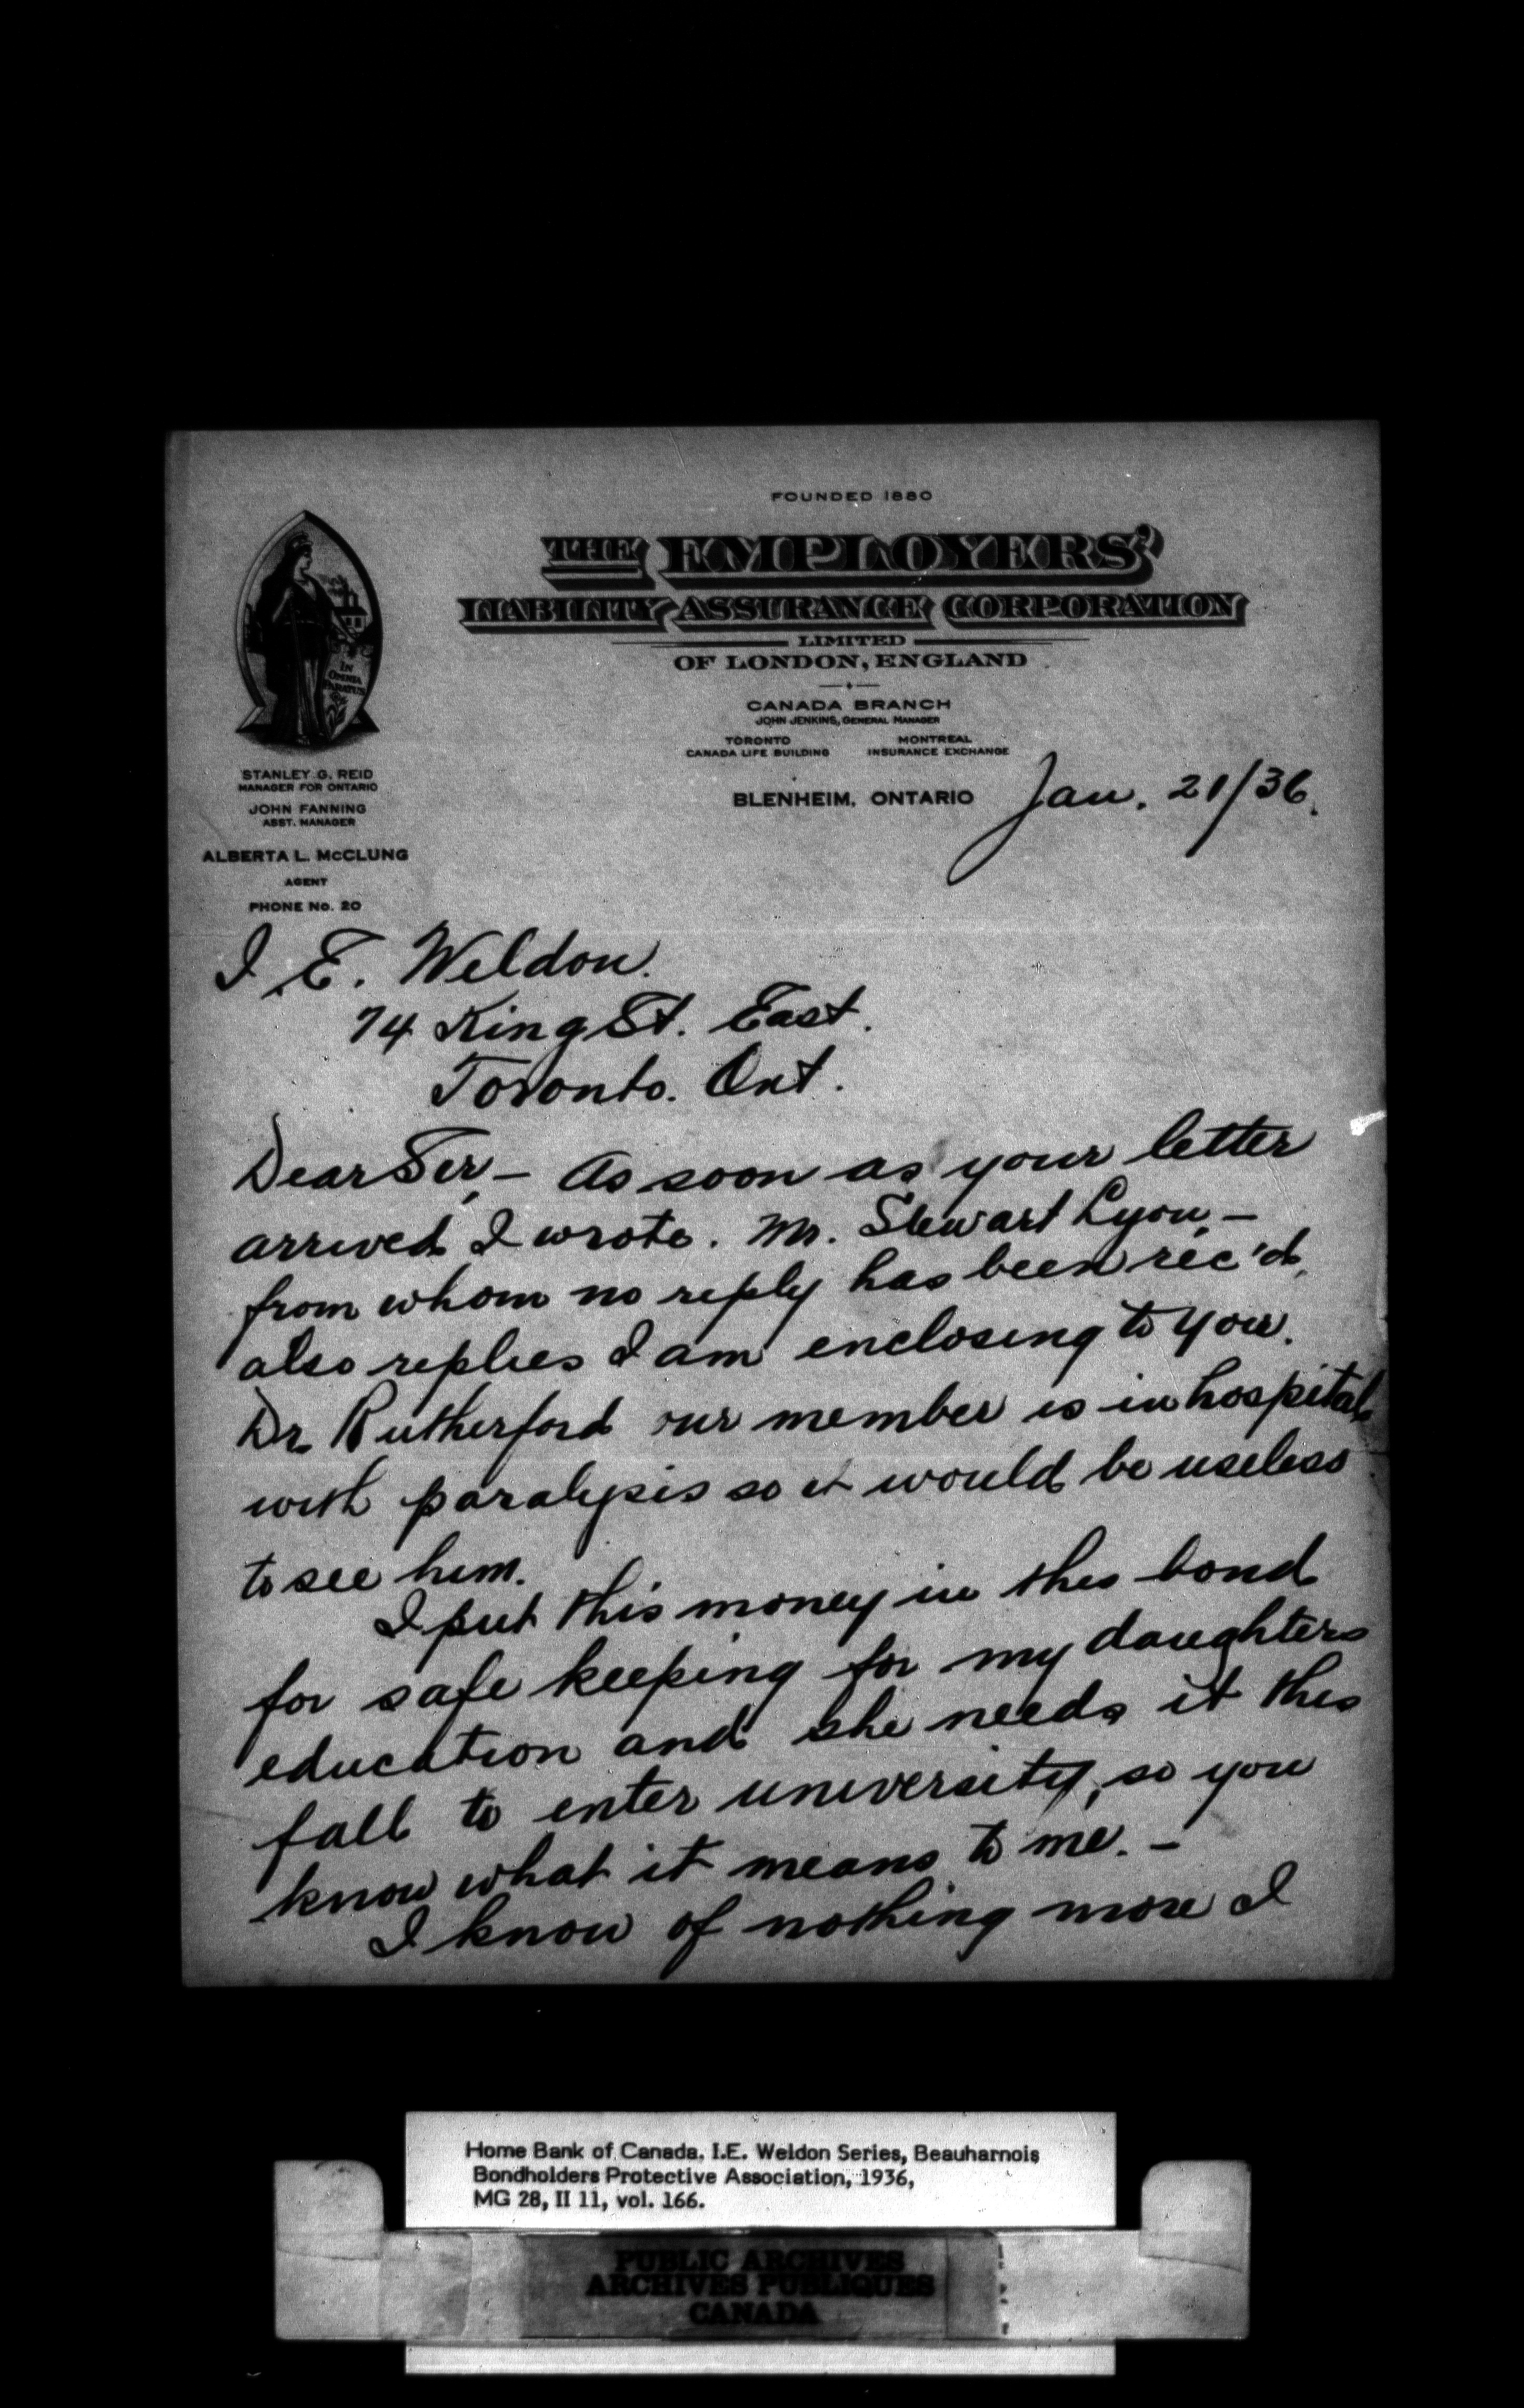 FOUNDED 1880
THE EMPLOYERS'
LIABILITY ASSURANCE CORPORATION
LIMITED
OF LONDON, ENGLAND
CANADA BRANCH
JOHN JENKINS, GENERAL MANAGER
TORONTO MONTREAL
CANADA LIFE BUILDING INSURANCE EXCHANGE
IN
OMNIA
PARATUS
STANLEY G. REID
MANAGER FOR ONTARIO
JOHN FANNING
ASST. MANAGER
ALBERTA L. McCLUNG
AGENT
PHONE No. 20
BLENHEIM, ONTARIO Jan. 21/36.
I. E. Weldon.
74 King St. East.
Toronto. Ont.
Dear Sir, – As soon as your letter
arrived I wrote. Mr. Stewart Lyon, –
from whom no reply has been rec'd,
also replies I am enclosing to you.
Dr. Rutherford our member is in hospital
with paralysis so it would be useless
to see him.
I put this money in this bond
for safe keeping for my daughters
education and she needs it this
fall to enter university, so you
know what it means to me. –
I know of nothing more I
Home Bank of Canada, I.E. Weldon Series, Beauharnois
Bondholders Protective Association, 1936,
MG 28, II 11, vol. 166.
PUBLIC ARCHIVES
ARCHIVES PUBLIQUES
CANADA